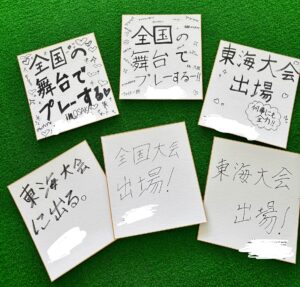 全国の
舞台で
プレーする
全国の
舞台で
プレーするー!!
東海大会
出場
何事にも
全力!!
東海大会
に出る。
全国大会
出場!
東海大会
出場!